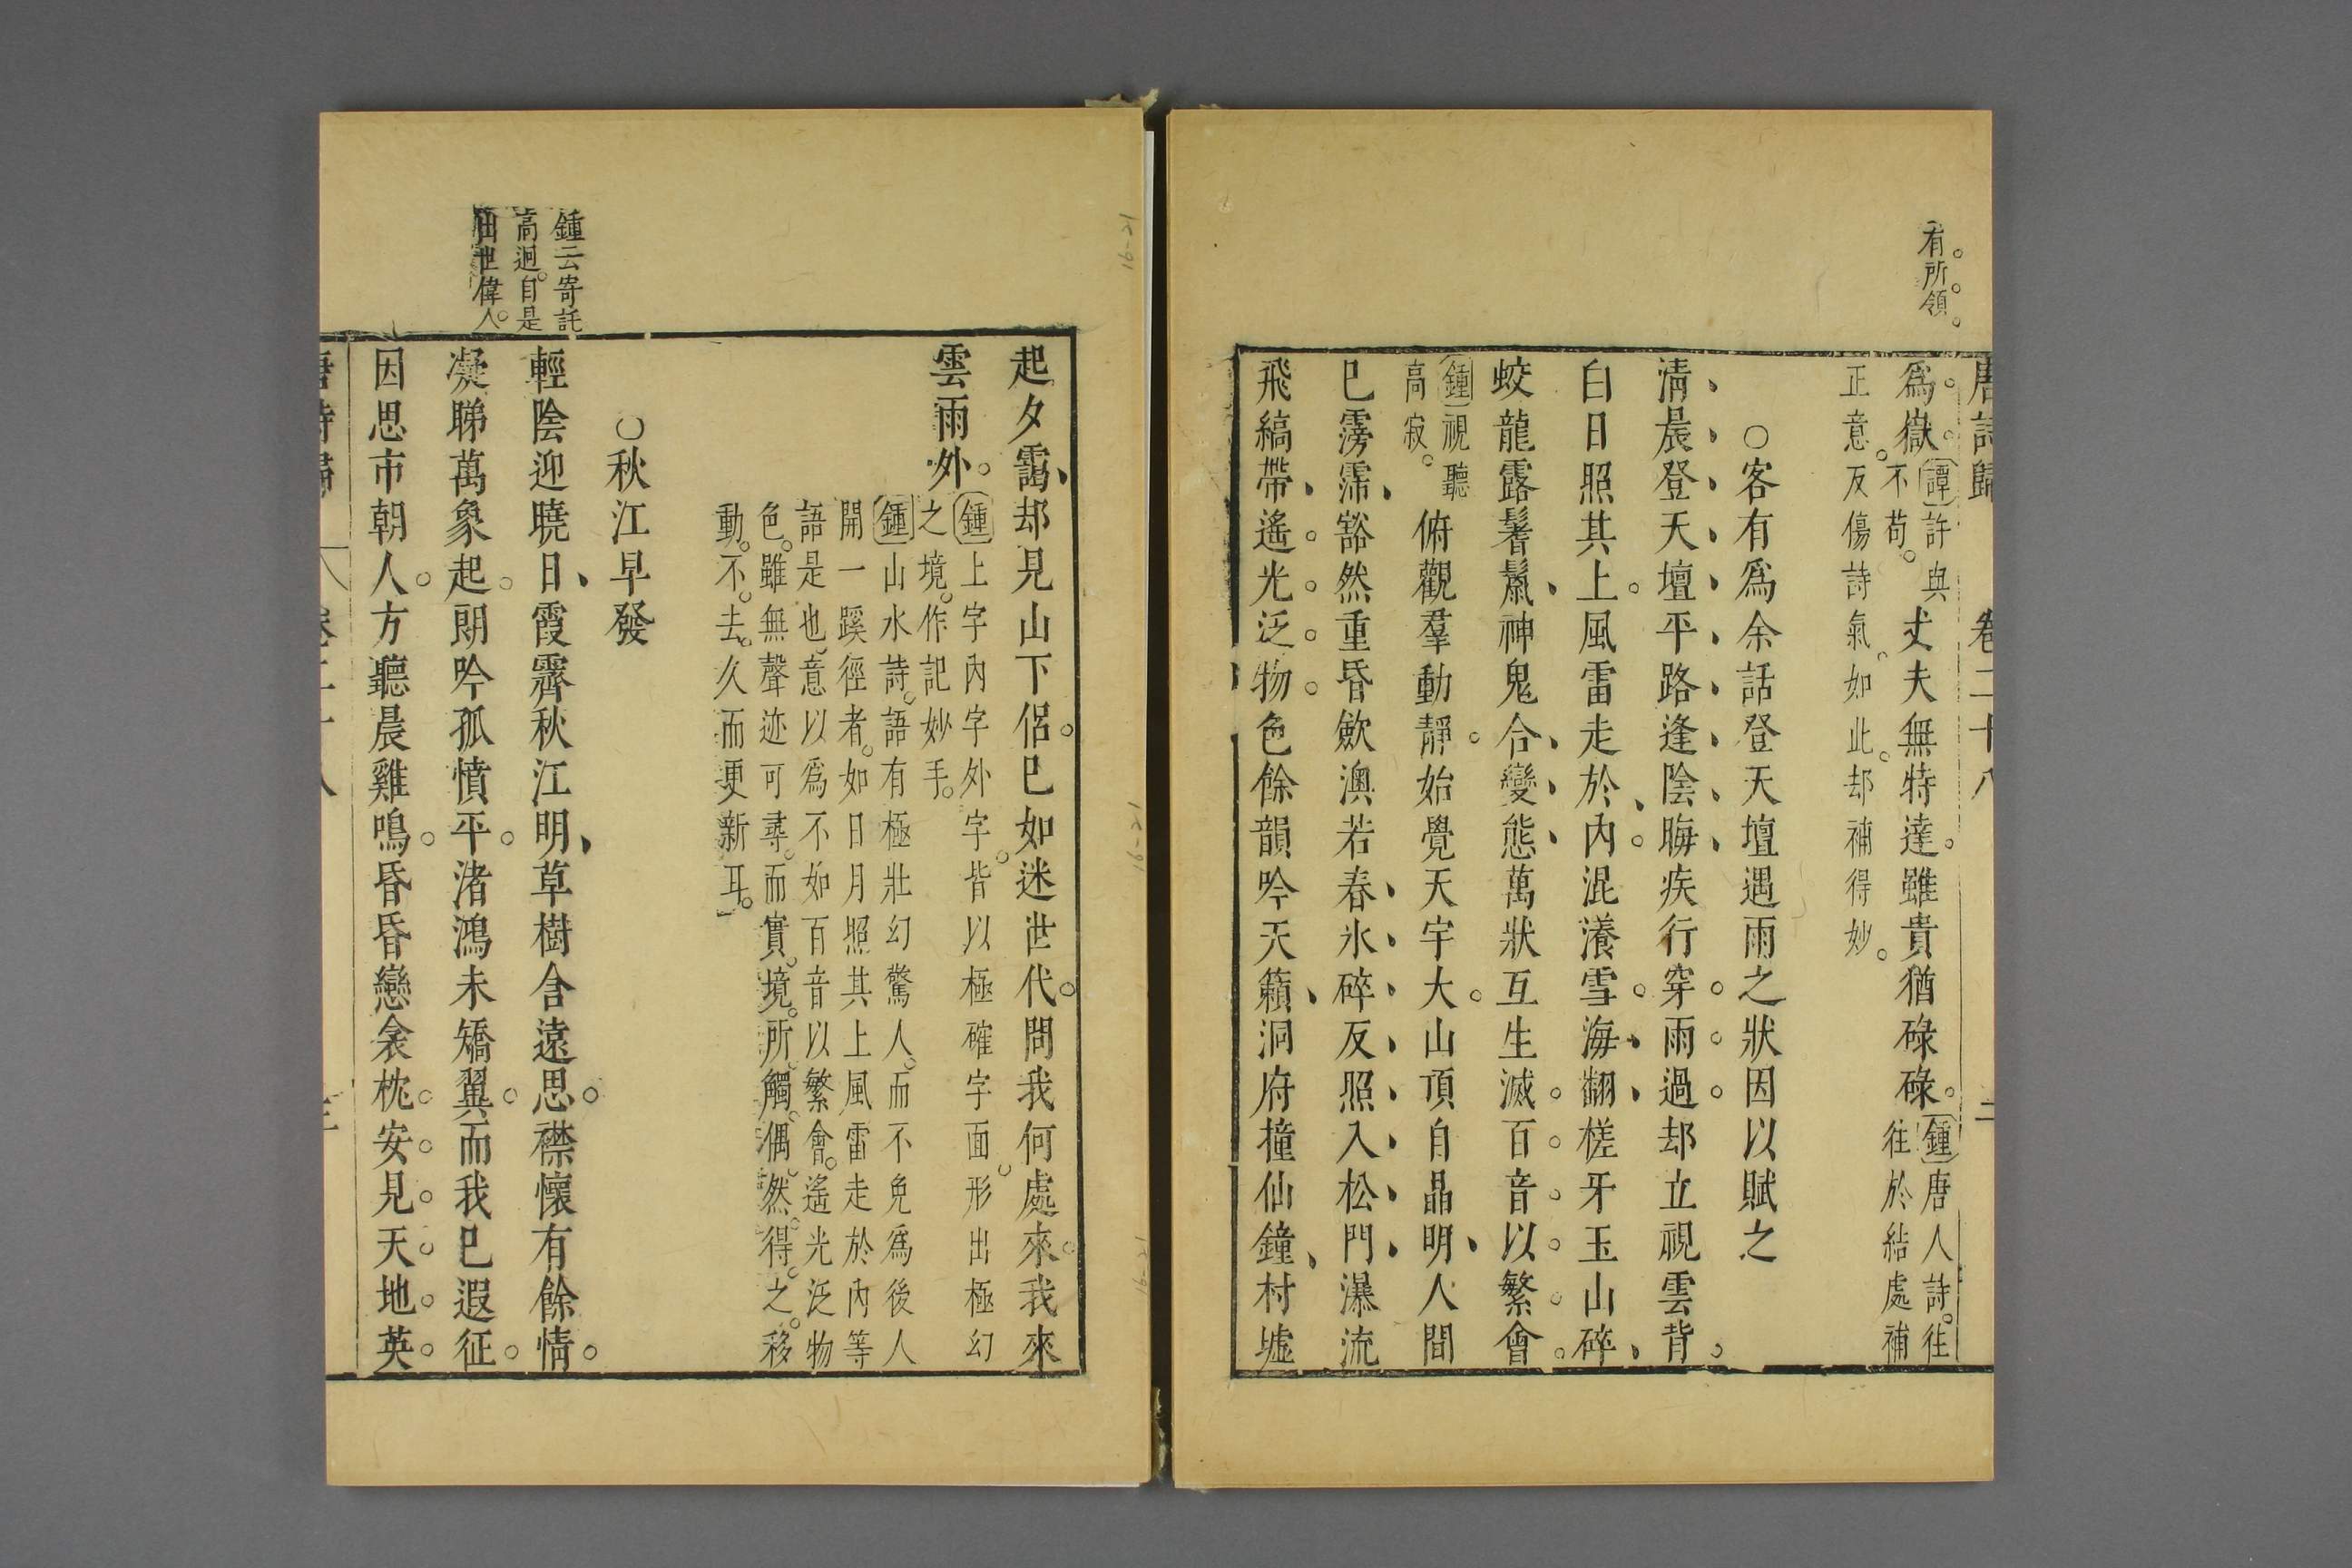 有所領
唐詩歸 卷二十八 二
爲嶽譚許與不苟丈夫無特達雖貴猶碌碌鍾唐人詩往往於結處補
正意反傷詩氣如此却補得妙
○客有爲余話登天壇遇雨之狀因以賦之
清晨登天壇平路逢陰晦疾行穿雨過却立視雲背
白日照其上風雷走於內混瀁雪海翻槎牙玉山碎
蛟龍露鬐鬣神鬼合變態萬狀互生滅百音以繁會
鍾視聽高寂俯觀羣動靜始覺天宇大山頂自晶明人間
已霶霈豁然重昏歛渙若春氷碎反照入松門瀑流
飛縞帶遙光泛物色餘韻吟天籟洞府撞仙鐘村墟
起夕靄却見山下侶已如迷世代問我何處來我來
雲雨外鍾上字內字外字皆以極確字面形出極幻之境作記妙手
鍾山水詩語有極壯幻驚人而不免爲後人
開一蹊徑者如日月照其上風雷走於內等
語是也意以爲不如百音以繁會遙光泛物
色雖無聲迹可尋而實境所觸偶然得之移
動不去久而更新耳
○秋江早發
鍾云寄託
高迥自是
出世偉人
輕陰迎曉日霞霽秋江明草樹含遠思襟懷有餘情
凝睇萬象起朗吟孤憤平渚鴻未矯翼而我已遐征
因思市朝人方聽晨雞鳴昏昏戀衾枕安見天地英
唐詩歸 卷二十八 三